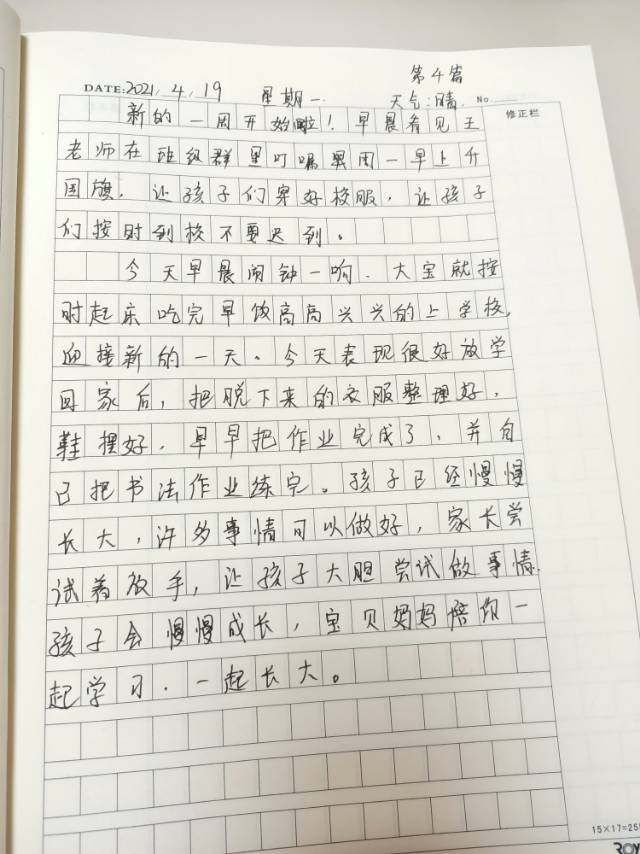 第4篇
DATE: 2021.4.19 星期一. 天气:晴. No.
修正栏
新的一周开始啦!早晨看见王
老师在班级群里叮嘱周一早上升
国旗.让孩子们穿好校服,让孩子
们按时到校不要迟到。
今天早晨闹钟一响.大宝就按
时起床吃完早饭高高兴兴的上学校,
迎接新的一天。今天表现很好放学
回家后,把脱下来的衣服整理好,
鞋摆好.早早把作业完成了、并自
己把书法作业练完。孩子已经慢慢
长大,许多事情可以做好,家长尝
试着放手,让孩子大胆尝试做事情.
孩子会慢慢成长,宝贝妈妈陪你一
起学习.一起长大。
15×17=255